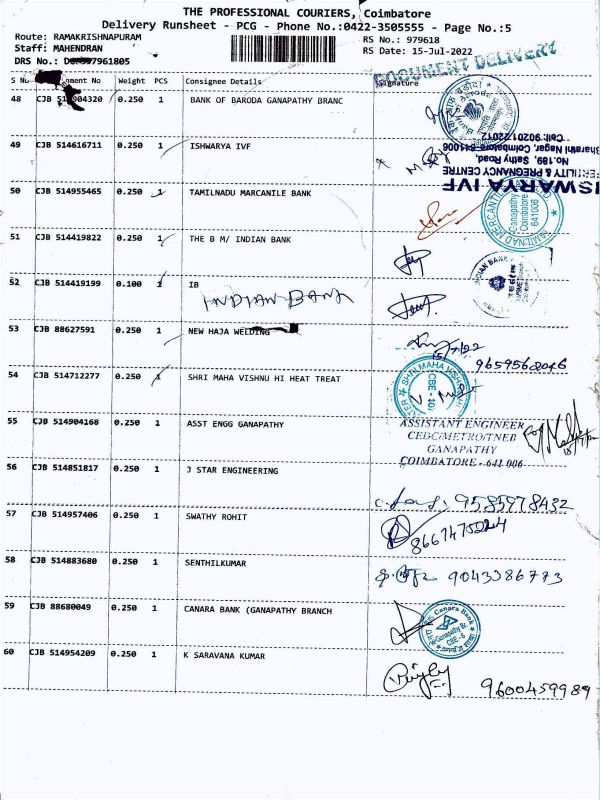 THE PROFESSIONAL COURIERS, Coimbatore
Delivery Runsheet - PCG - Phone No.:0422-3505555 - Page No.:5
Route: RAMAKRISHNAPURAM RS No.: 979618
Staff: MAHENDRAN RS Date: 15-Jul-2022
DRS No.: 7961805
DOCUMENT DELIVERY
S No ment No Weight PCS Consignee Details Signature
48 CJB 904320 0.250 1 BANK OF BARODA GANAPATHY BRANC
49 CJB 514616711 0.250 1 ISHWARYA IVF
ISWARYA IVF
FERTILITY & PREGNANCY CENTRE
NO.189, Sathy Road,
Bharathi Nagar, Coimbatore-641006
Cell: 90201 22012
50 CJB 514955465 0.250 1 TAMILNADU MARCANILE BANK
TAMILNAD MERCANTILE
Ganapathy
Coimbatore
641006
51 CJB 514419822 0.250 1 THE B M/ INDIAN BANK
52 CJB 514419199 0.100 1 IB
INDIAN BANK
INDIAN BANK
53 CJB 88627591 0.250 1 NEW HAJA WELDING
15/7/22 9659568046
54 CJB 514712277 0.250 1 SHRI MAHA VISHNU HI HEAT TREAT
SHRI MAHA VISHNU
CBE-
55 CJB 514904168 0.250 1 ASST ENGG GANAPATHY
ASSISTANT ENGINEER
CEDC/METRO/TNEB
GANAPATHY
COIMBATORE - 641 006
56 CJB 514851817 0.250 1 J STAR ENGINEERING
9585978432
57 CJB 514957406 0.250 1 SWATHY ROHIT
8667475224
58 CJB 514883680 0.250 1 SENTHILKUMAR
9043386773
59 CJB 88680049 0.250 1 CANARA BANK (GANAPATHY BRANCH
Canara Bank
Ganapathy Br
CBE - 6
60 CJB 514954209 0.250 1 K SARAVANA KUMAR
9600459989